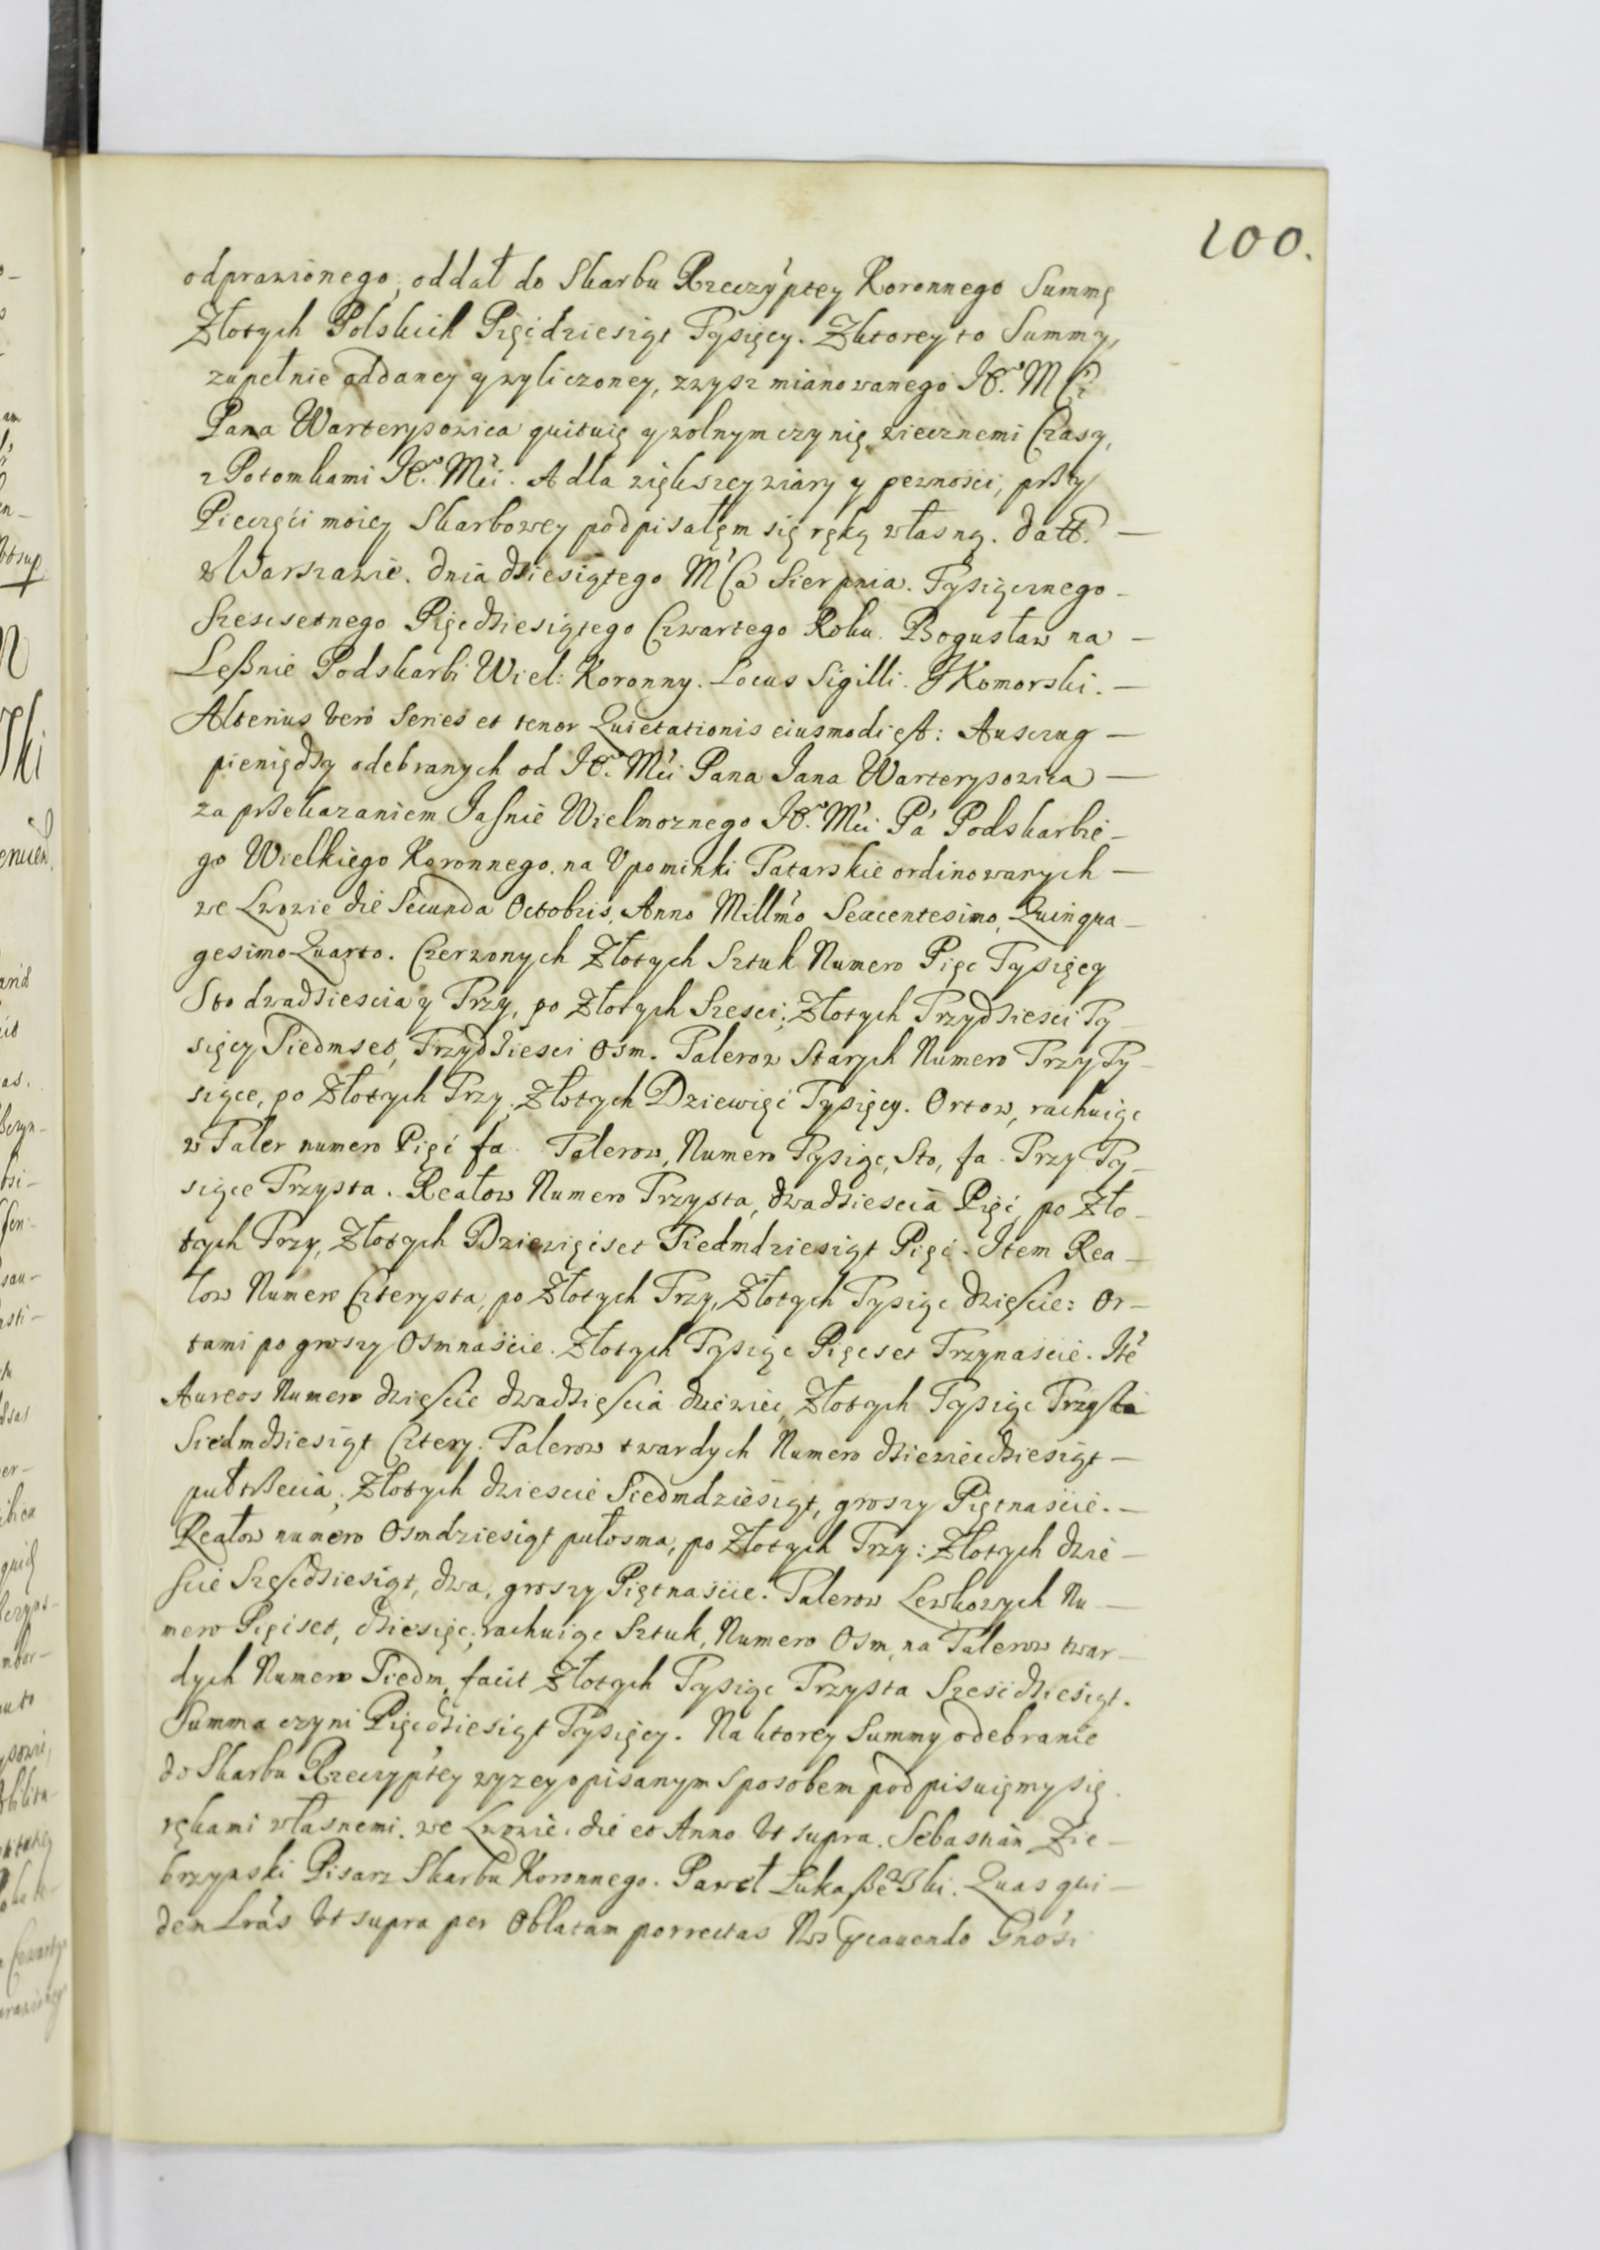 100.
odprawionego, oddał do Skarbu Rzeczyptey Koronnego Summę
Złotych Polskich Pięćdziesiąt Tysięcy. Z ktorey to Summy,
zupełnie oddaney y wyliczoney, zwysz mianowanego Je° M Ci
Pana Warterysowica quituię y wolnym czynię wiecznemi Czasy,
z Potomkami Je° Mci. A dla większey wiary y pewności, przy
Pieczęci moiey Skarbowey podpisałęm się ręką własną. Datt. —
w Warszawie. dnia dziesiątego M Ca Sierpnia. Tysiącznego —
Szescsetnego Pięcdziesiątego Czwartego Roku. Bogusław na —
Leßnie Podskarbi Wiel: Koronny. Locus Sigilli. J Komorski. —
Alterius vero Series et tenor Quietationis eiusmodi est: Auszug —
pieniędzy odebranych od Je° Mci Pana Jana Warterysowica —
za przekazaniem Jaśnie Wielmoznego Je° Mci Pa Podskarbie-
go Wielkiego Koronnego, na Upominki Tatarskie ordinowanych —
we Lwowie die Secunda Octobris, Anno Millmo Sexcentesimo, Quinqua-
gesimo Quarto. Czerwonych Złotych Sztuk Numero Pięc Tysięcy
Sto dwadziescia y Trzy, po Złotych Szesci; Złotych Trzydziesci Ty-
sięcy Siedmset, Trzydziesci Osm. Talerow Starych Numero Trzy Ty-
siące, po Złotych Trzy, Złotych Dziewięć Tysięcy. Ortow, rachuiąc
w Taler numero Pięć fa. Talerow, Numero Tysiąc, Sto, fa. Trzy Ty-
siące Trzysta. Reałow Numero Trzysta, dwadziescia Pięć, po Zło-
tych Trzy, Złotych Dziewięćset Siedmdziesiąt Pięć. Item Rea-
łow Numero Czterysta, po Złotych Trzy, Złotych Tysiąc dzieście: Or-
tami po groszy Osmnaście. Złotych Tysiąc Pięcset Trzynaście. Ite
Aureos Numero dzieście dwadzieścia dziewieć, Złotych Tysiąc Trzysta
Siedmdziesiąt Cztery. Talerow twardych Numero dziewiećdziesiąt —
puł trzecia, Złotych dziescie Siedmdziesiąt, groszy Piętnaście. —
Reałow numero Osmdziesiąt pułosma, po Złotych Trzy: Złotych dzie-
ście Sześcdziesiąt, dwa, groszy Piętnaście. Talerow Lewkowych Nu-
mero Pięcset, dziesięc, rachuiąc Sztuk, Numero Osm, na Talerow twar-
dych Numero Siedm, facit Złotych Tysiąc Trzysta Sześćdziesiąt.
Summa czyni Pięcdziesiąt Tysięcy. Na ktorey Summy odebranie
do Skarbu Rzeczyptey wyzey opisanym sposobem podpisuięmy się
rękami własnemi. we Lwowie. die et Anno Ut supra. Sebastian Zie-
brzynski Pisarz Skarbu Koronnego. Paweł Łukaßewski. Quas qui-
dem Lras Ut supra per Oblatam porrectas Nos